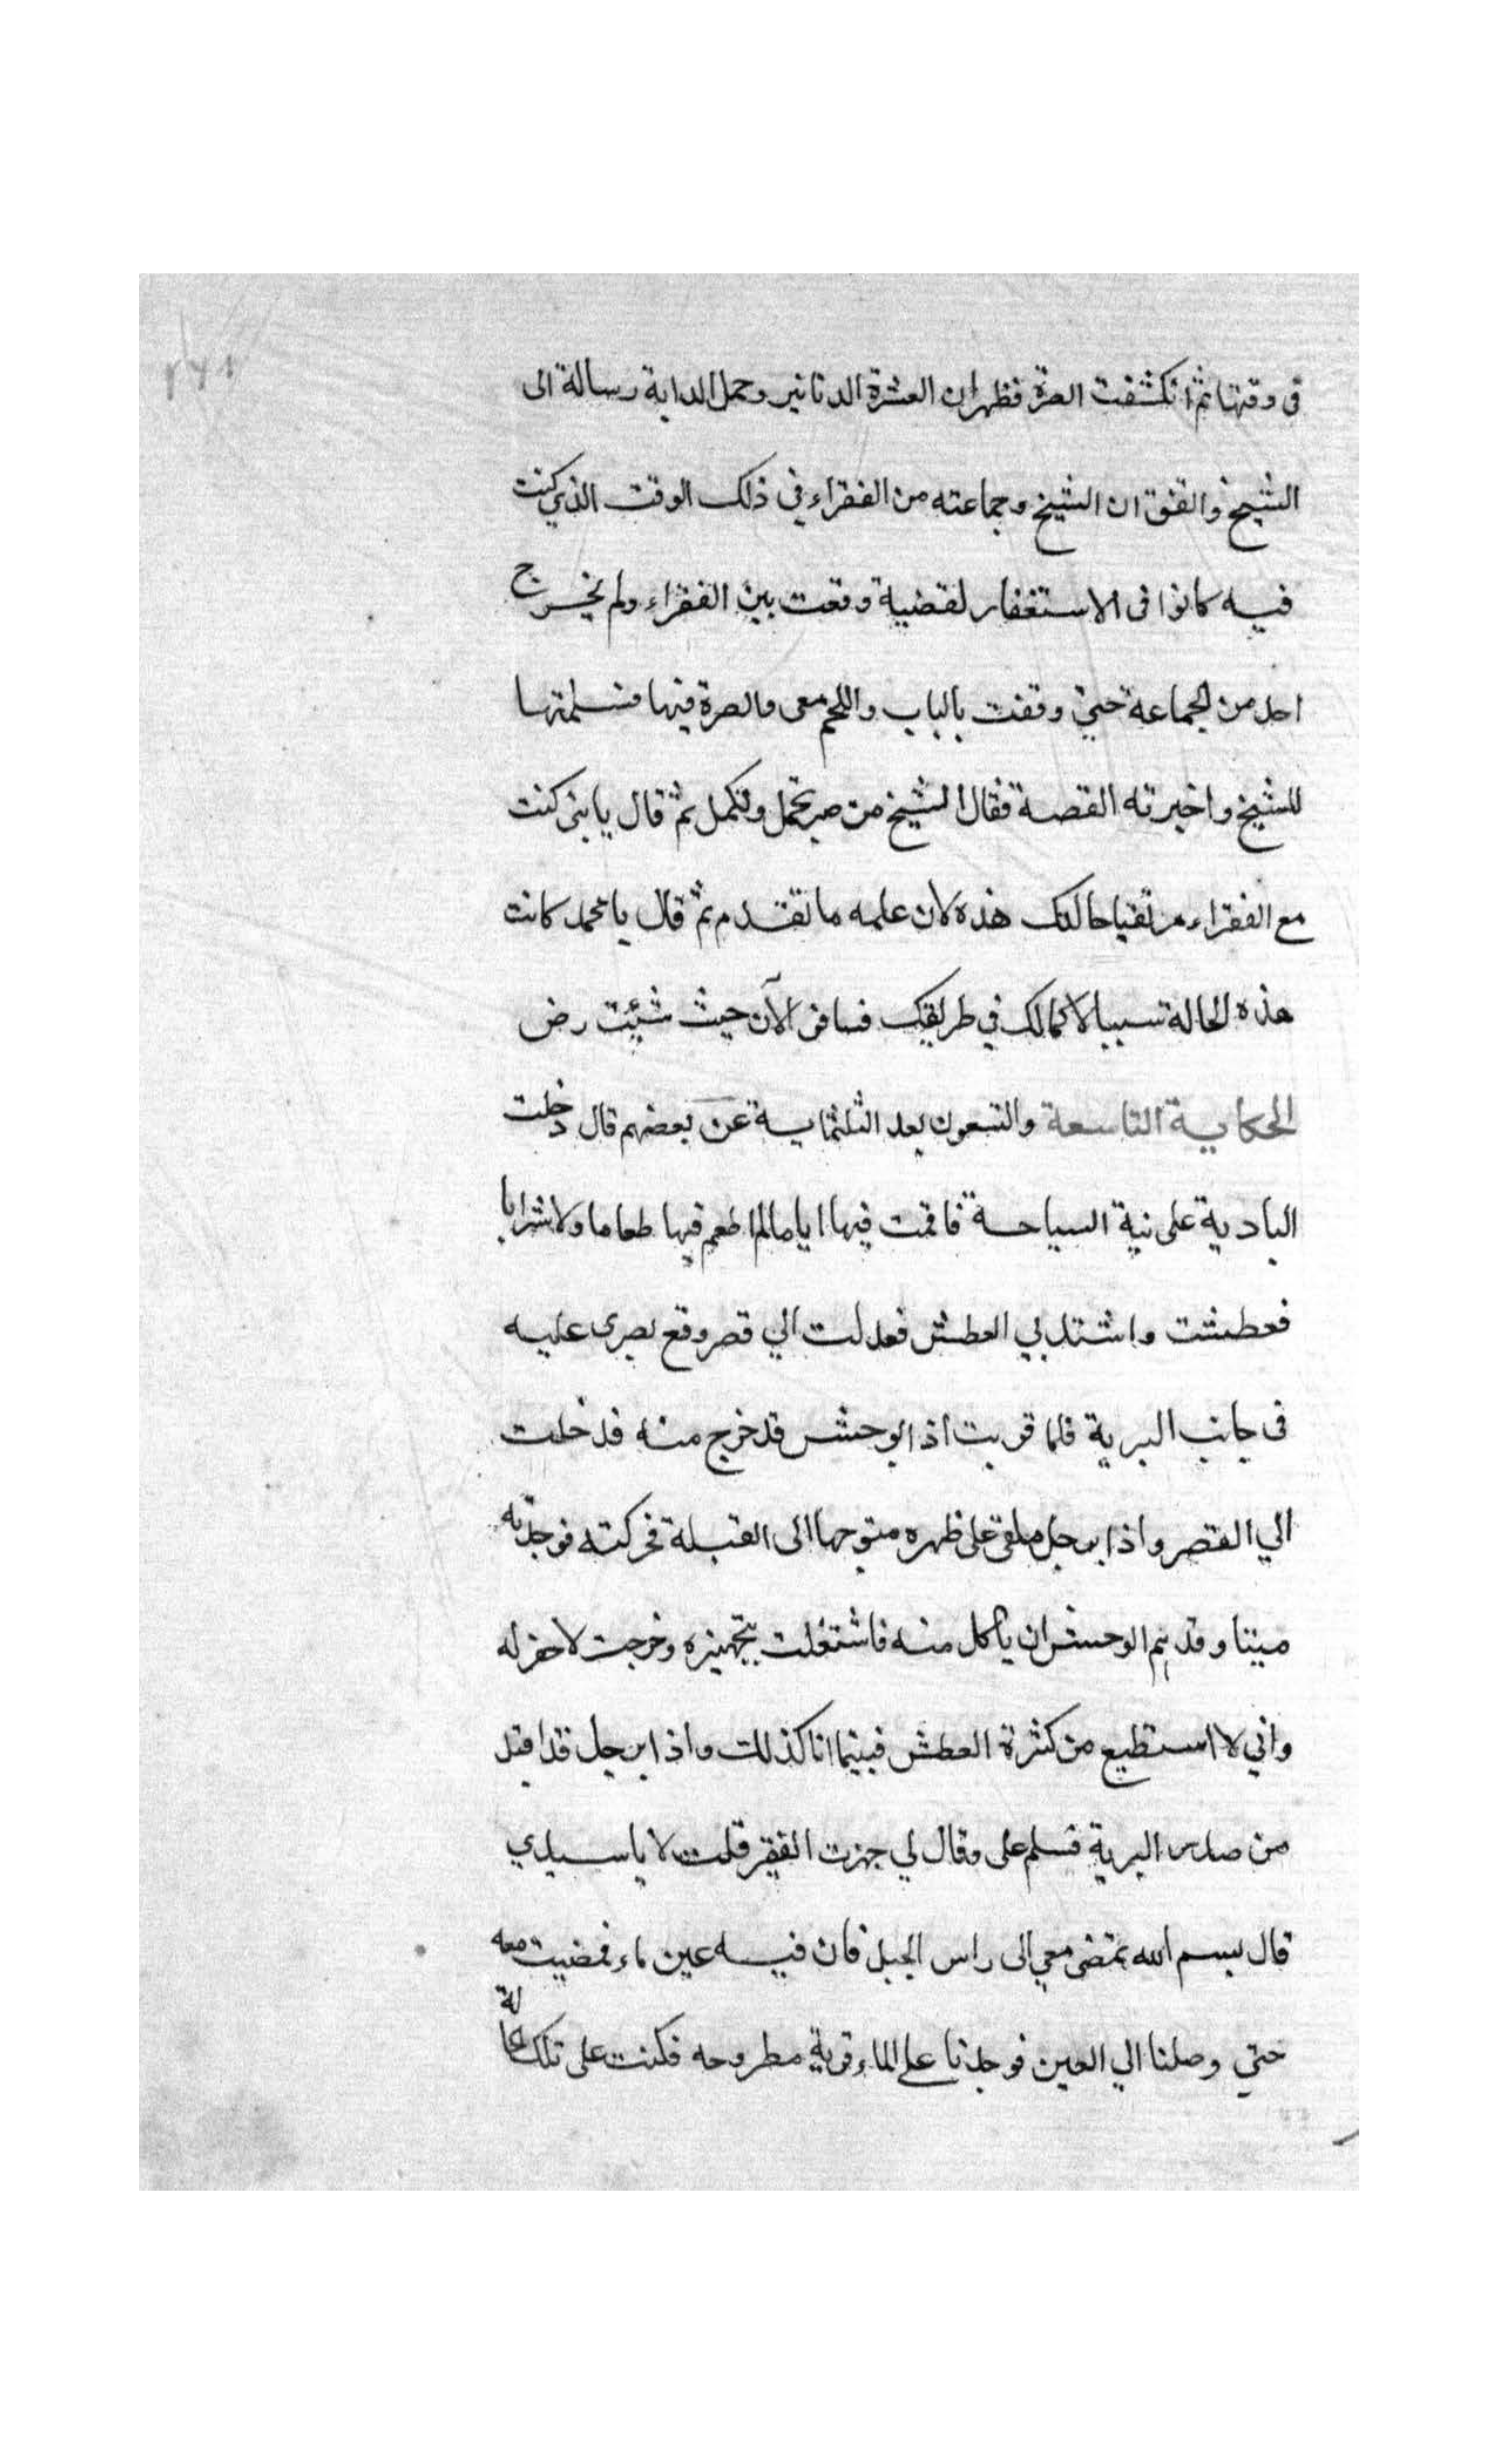 في وقتها ثم انكشفت الصرة فظهر ان العشرة الدنانير وحمل الدابة رسالة الى
الشيخ واتفق ان الشيخ وجماعته من الفقراء في ذلك الوقت الذي كنت
فيه كانوا فى الاستغفار لقضية وقعت بين الفقراء ولم يخرج
احد من الجماعة حتي وقفت بالباب واللحم معى والصرة فيها فسلمتها
للشيخ واخبرته القصة فقال الشيخ من صبر تحمل وتكمل ثم قال يا بنى كنت
مع الفقراء مرتقيا حالتك هذه لان علمه ما تقدم ثم قال يا محمد كانت
هذه الحالة سببا لاكمالك في طريقك فسافر الآن حيث شيئت رض
الحكاية التاسعة والتسعون بعد الثلثماية عن بعضهم قال دخلت
البادية على نية السياحة فاقمت فيها اياما لم اطعم فيها طعاما ولا شرابا
فعطشت واشتد بي العطش فعدلت الي قصر وقع بصرى عليه
فى جانب البرية فلما قربت اذ الوحش قد خرج منه فدخلت
الي القصر واذا برجل ملقى على ظهره متوجها الى القبلة فحركته فوجدته
ميتا وقد هم الوحش ان يأكل منه فاشتغلت بتجهيزه وخرجت لاحفر له
واني لا استطيع من كثرة العطش فبينما انا كذلك واذا برجل قد اقبل
من صدر البرية فسلم على وقال لي جهزت الفقير قلت لا يا سيدي
قال بسم الله تمضى معي الى راس الجبل فان فيه عين ماء فمضيت معه
حتي وصلنا الي العين فوجدنا على الماء قربة مطروحه فكنت على تلك الحالة